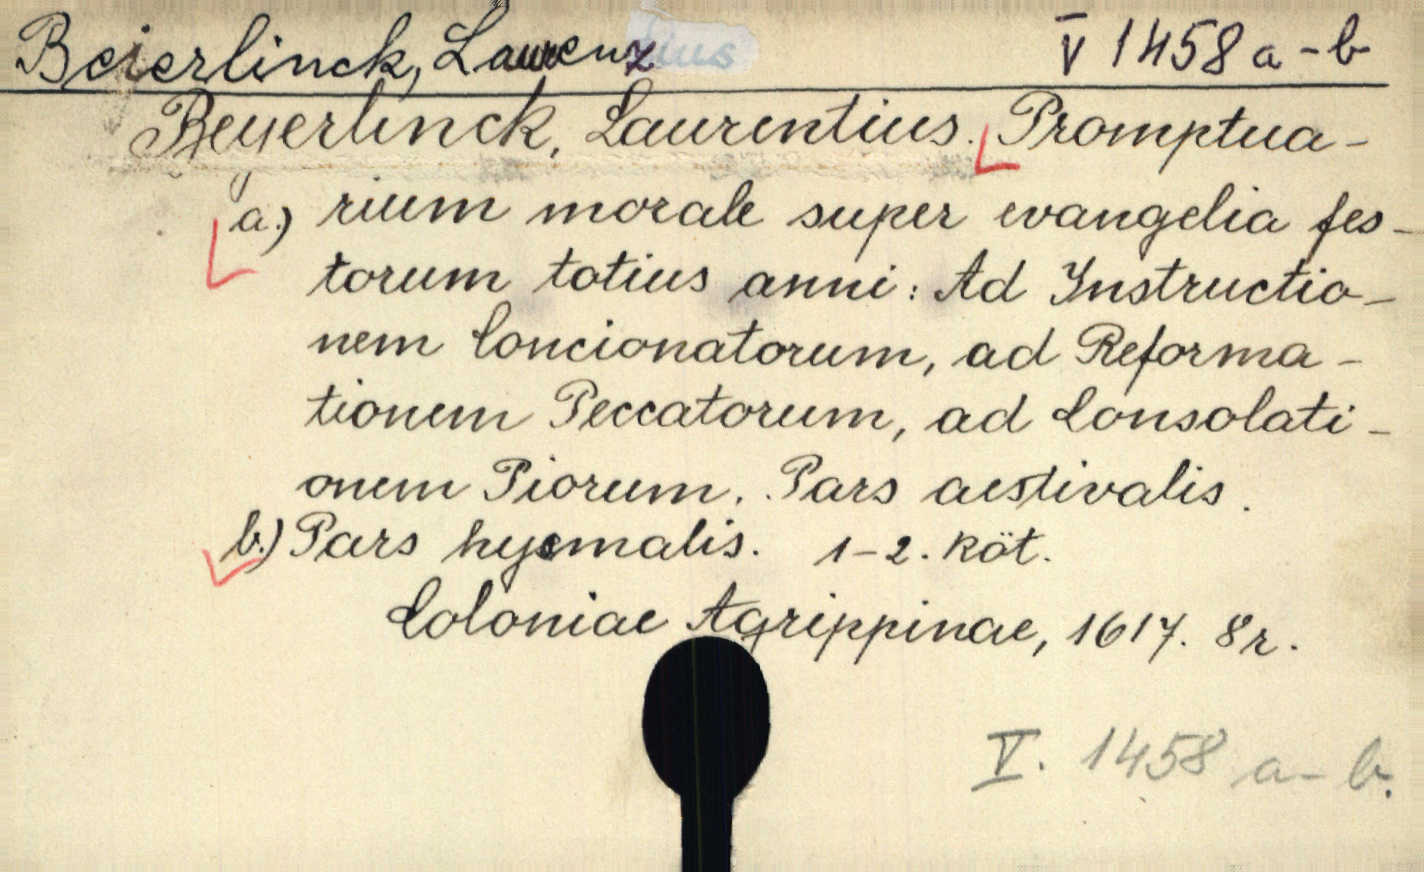 Beierlinck, Laurenz V 1458 a-b
Beyerlinck, Laurentius. Promptua-
a.) rium morale super evangelia fes-
torum totius anni: Ad Instructio-
nem Concionatorum, ad Reforma-
tionem Peccatorum, ad Consolati-
onem Piorum. Pars aestivalis.
b.) Pars hyemalis. 1-2. köt.
Coloniae Agrippinae, 1617. 8r.
V. 1458 a-b.